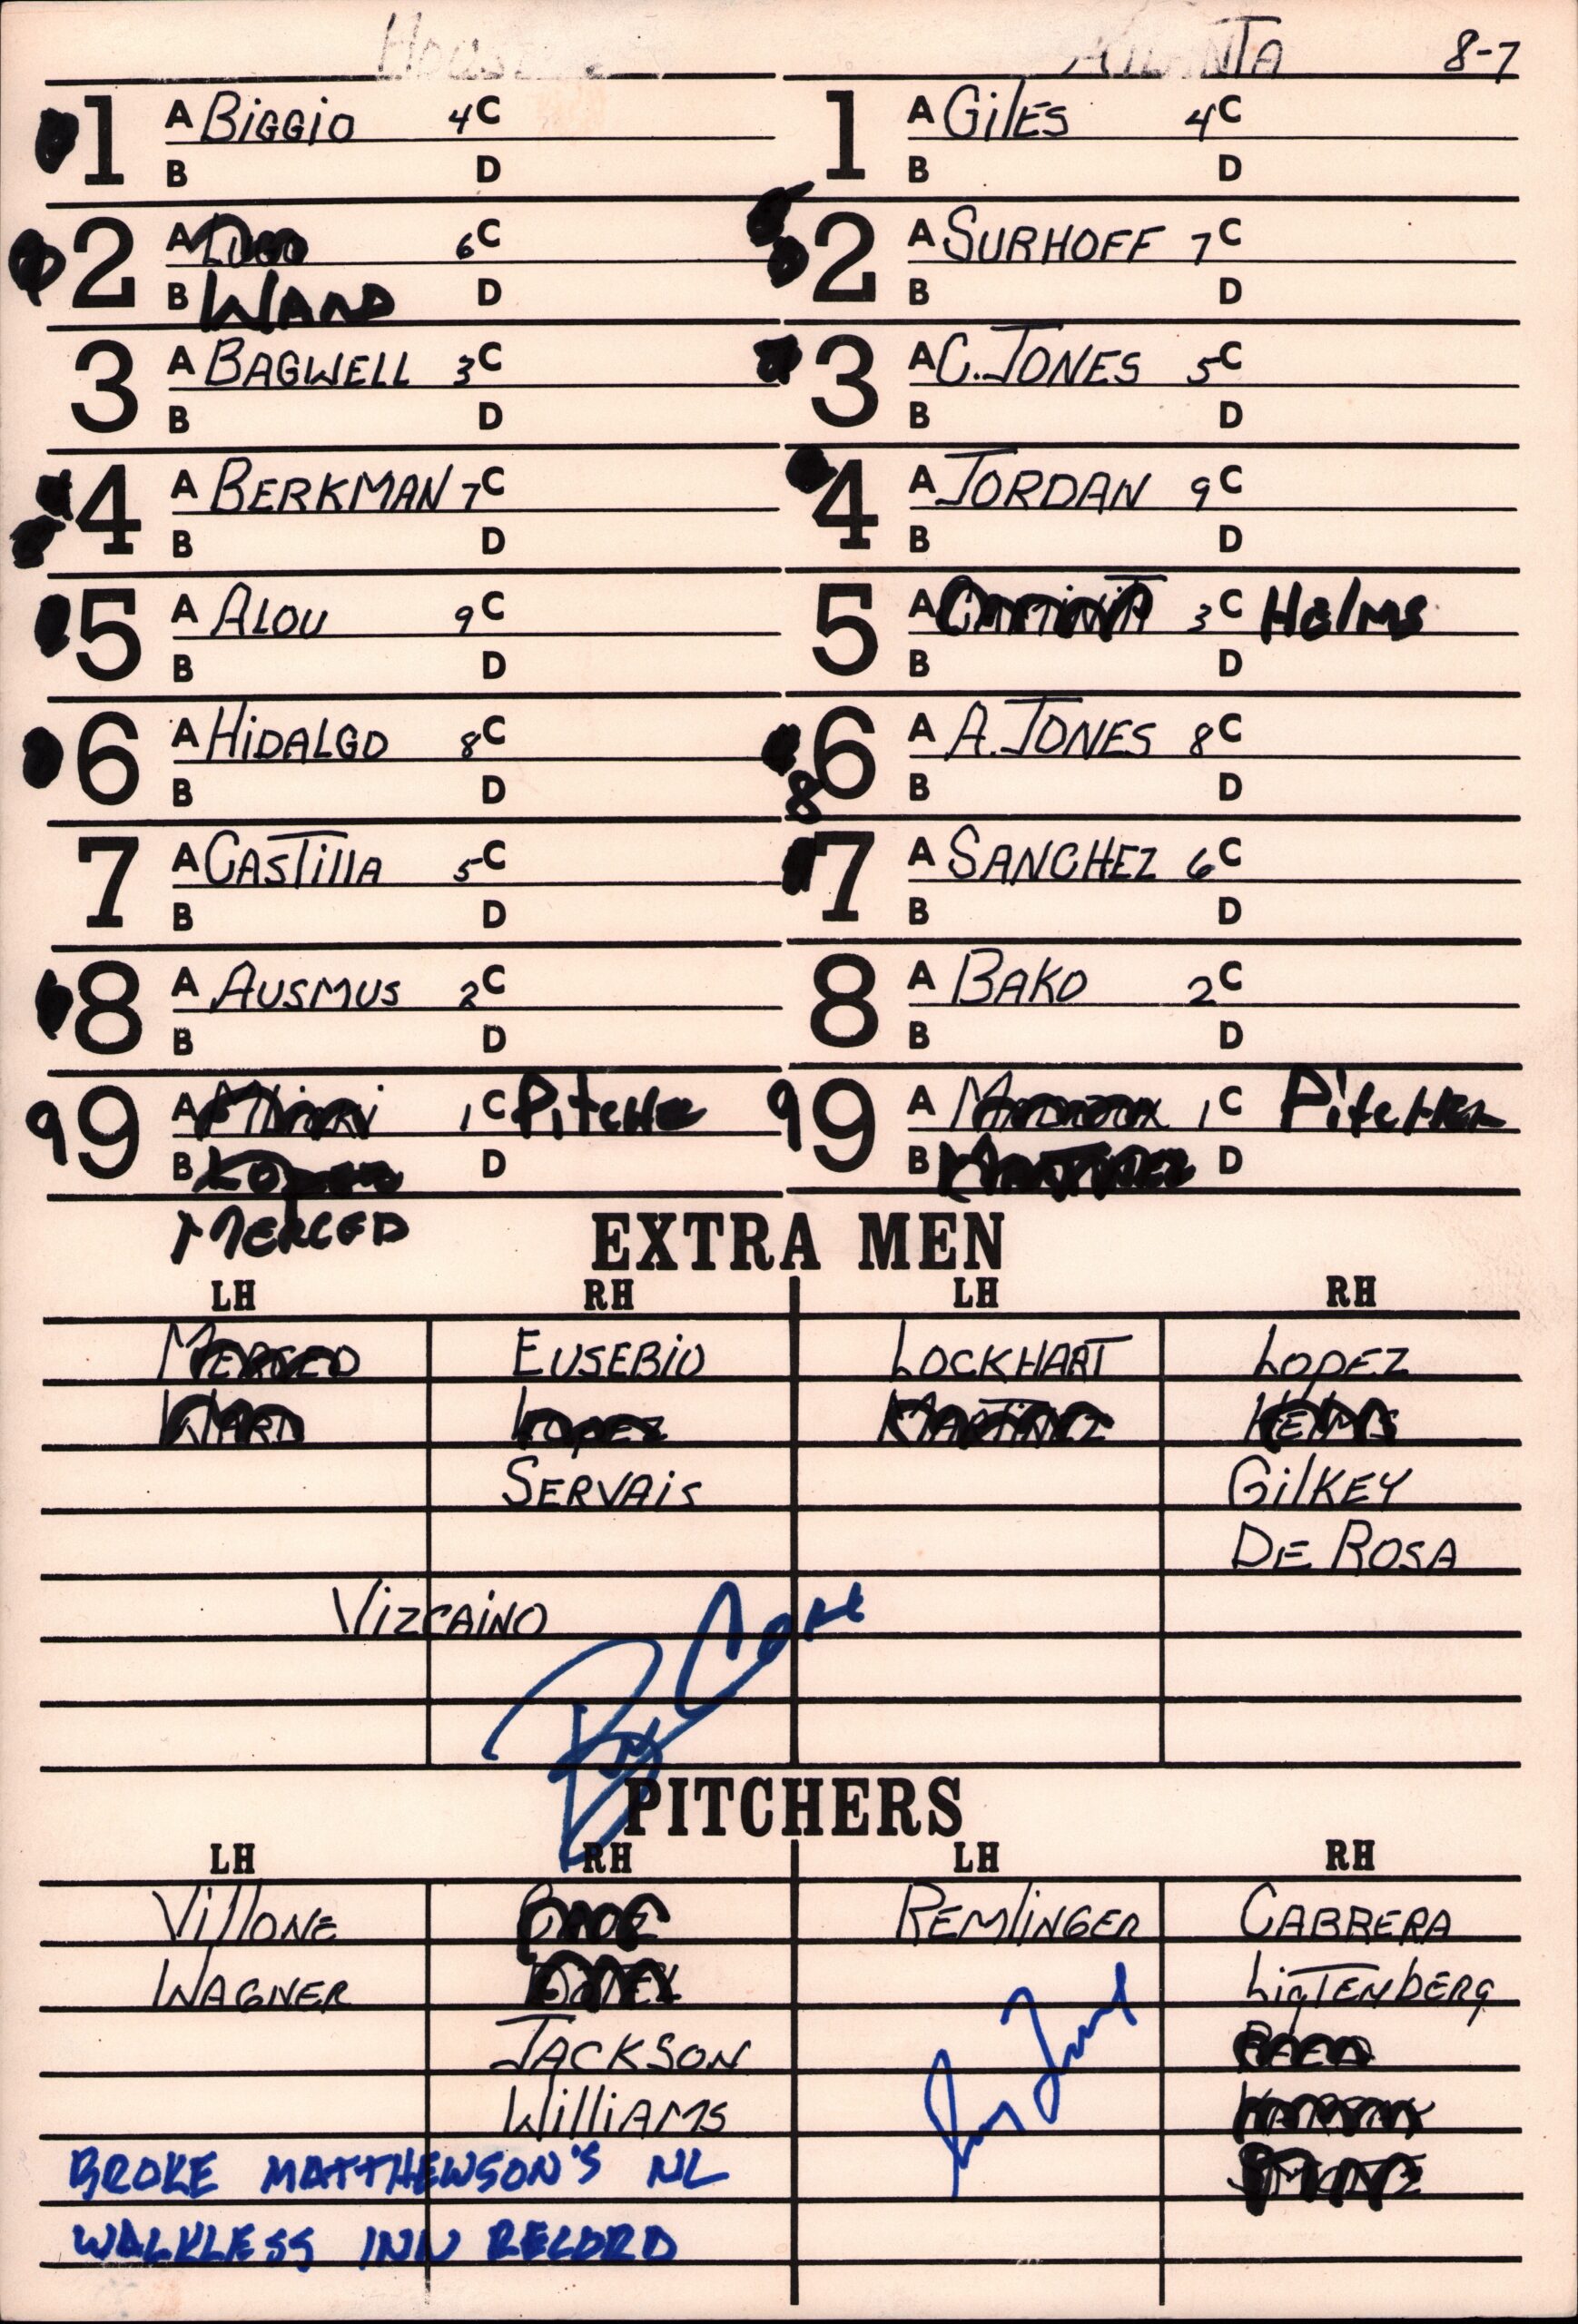 HOUSTON ATLANTA 8-7
1 A BiGGIO 4 C
B D
2 A LUGO 6 C
B WARD D
3 A BAGWELL 3 C
B D
4 A BERKMAN 7 C
B D
5 A ALOU 9 C
B D
6 A HiDALGO 8 C
B D
7 A CASTillA 5 C
B D
8 A AUSMUS 2 C
B D
9 9 A 1 C PitcHe
B LOPEZ D
MERCED
1 A GilES 4 C
B D
2 A SURHOFF 7 C
B D
3 A C. JONES 5 C
B D
4 A JORDAN 9 C
B D
5 A 3 C HElMS
B D
6 A A. JONES 8 C
8 B D
7 A SANCHEZ 6 C
B D
8 A BAKO 2 C
B D
9 9 A MADDUX 1 C PitcHER
B MARTINEZ D
EXTRA MEN
LH RH LH RH
MERCED EUSEBIO LOCKHART LOPEZ
WARD LOPEZ MARTINEZ HELMS
SERVAiS GilKEY
DE ROSA
VizCAiNO
PITCHERS
LH RH LH RH
VillONE REMliNGER CABRERA
WAGNER DOTEL LigTENbERg
JACKSON REED
WilliAMS KARSAY
BROKE MATTHEWSON'S NL SMOLTZ
WALKLESS INN RECORD